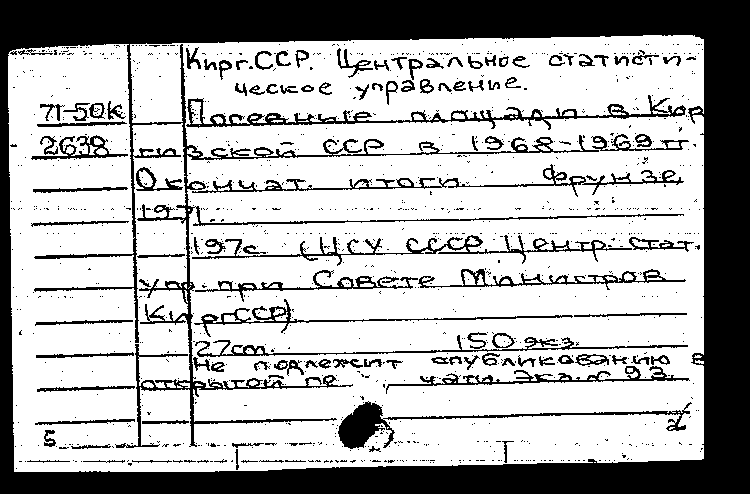 Кирг.ССР. Центральное статисти-
ческое управление.
71-50к Посевные площади в Кир
2638 гизской ССР в 1968-1969 гг.
Окончат. итоги. Фрунзе,
1971.
197с (ЦСУ СССР. Центр. стат.
упр. при Совете Министров
КиргССР)
27cm. 150 экз.
Не подлежит опубликованию в
открытой пе чати. Экз. № 93.
5